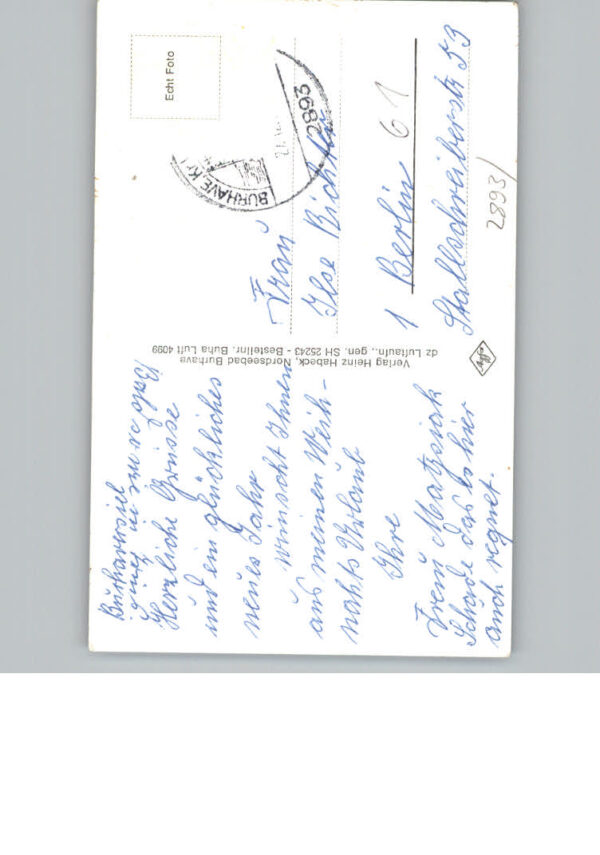 Burhaversiel
Herzliche Grüsse
und ein glückliches
neues Jahr
wünscht Ihnen
aus meinen Weih-
nahts Urlaub
Ihre
Schade das es hier
auch regnet.
Verlag Heinz Habeck, Nordseebad Burhave
dz Luftaufn., gen. SH 25243 - Bestellnr. Buha Luft 4099
Agfa
Echt Foto
2893
BURHAVE, Kr
Frau
Ilse
1 Berlin 61
Stallschreiberstr 53
2893/